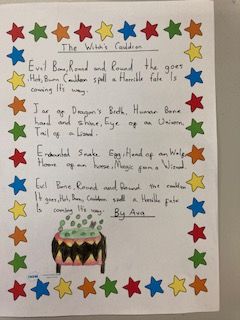 The Witch's Cauldron
Evil Bone, Round and Round the goes
Hot, Burn Cauldron spell a Horrible fate Is
coming It's way.
Jar of Dragon's Breth, Human Bone
hard and shine, Eye of an Unicorn,
Tail of a Lizard.
Enchanted Snake Egg, Head of an Wolf,
Horn of an horse, Magic from a Wizard.
Evil Bone, Round and Round the cauldron
It goes, Hot, Burn, Cauldron spell a Horrible fate
Is coming It's way.
By Ava